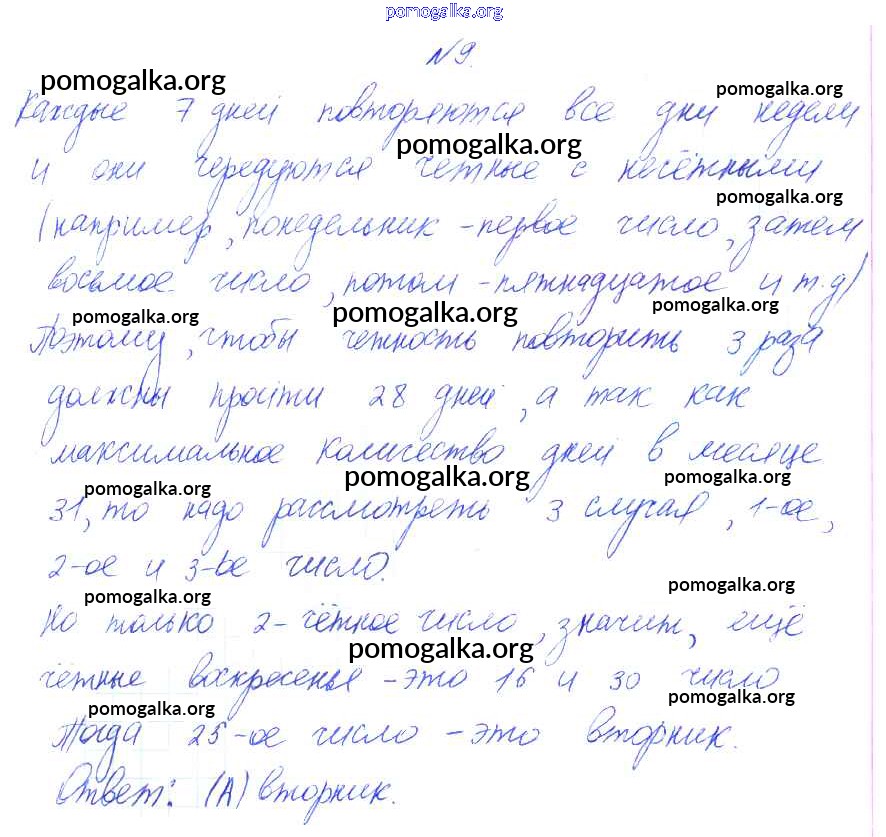 pomogalka.org
№9.
pomogalka.org
pomogalka.org
Каждые 7 дней повторяются все дни недели
pomogalka.org
и они чередуются чётные с нечётными
pomogalka.org
(например, понедельник - первое число, затем
восьмое число, потом - пятнадцатое и т.д)
pomogalka.org pomogalka.org pomogalka.org
Поэтому, чтобы четность повторить 3 раза
должны пройти 28 дней, а так как
максимальное количество дней в месяце
pomogalka.org pomogalka.org pomogalka.org
31, то надо рассмотреть 3 случая, 1-ое,
2-ое и 3-ье число.
pomogalka.org pomogalka.org
Но только 2 - чётное число, значит, ещё
pomogalka.org
чётные воскресенья - это 16 и 30 число
pomogalka.org pomogalka.org
Тогда 25-ое число - это вторник.
Ответ: (А) вторник.